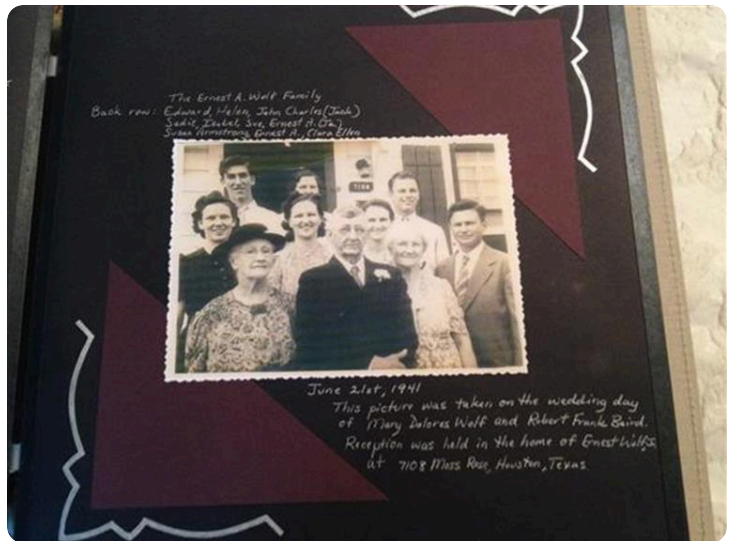 The Ernest A. Wolf Family
Back row: Edward, Helen, John Charles (Jack)
Sadie, Isabel Sue, Ernest A. (Jr.)
Susan Armstrong, Ernest A., Clara Ellen
7108
June 21st, 1941
This picture was taken on the wedding day
of Mary Dolores Wolf and Robert Frank Baird.
Reception was held in the home of Ernest Wolf,
at 7108 Moss Rose, Houston, Texas